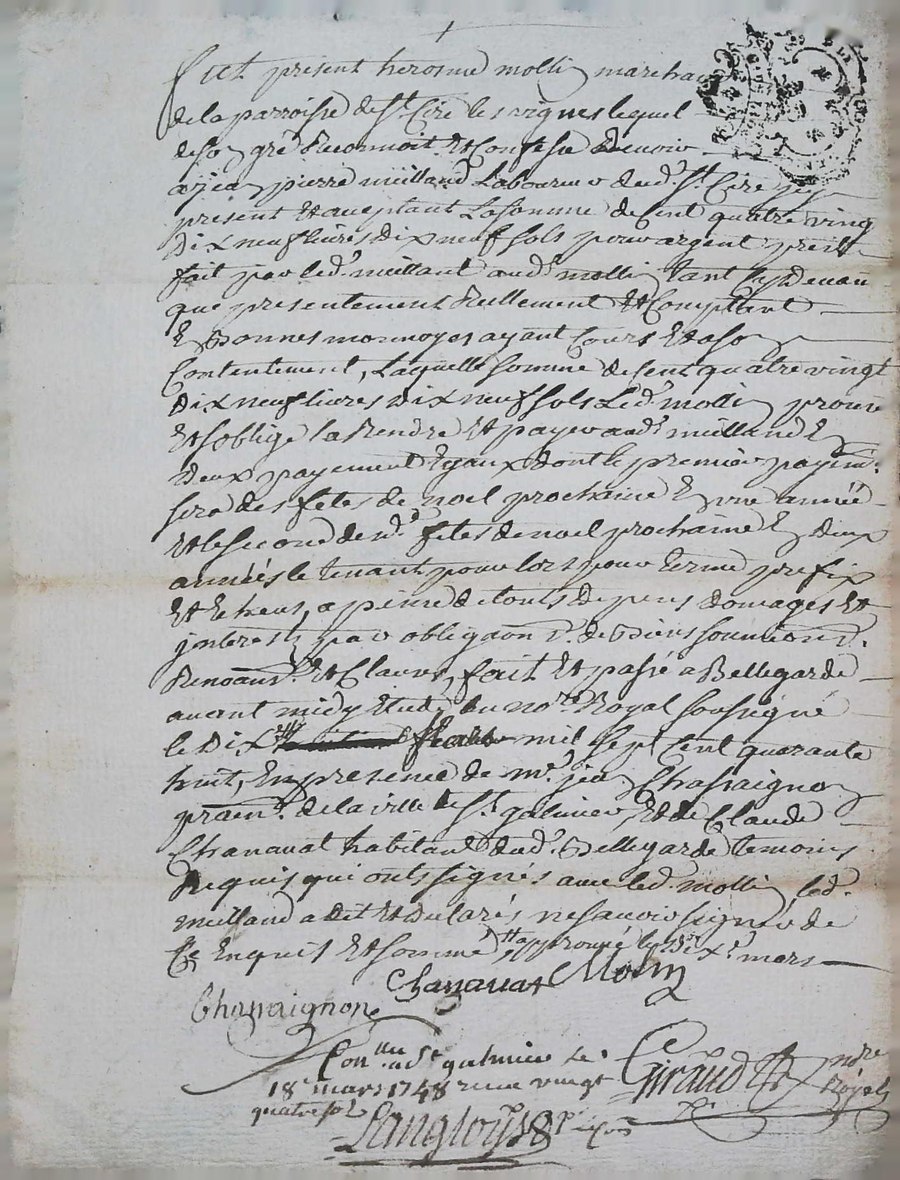 Fut present hierosme mollin marchan
de la parroisse de St. Cire les vignes lequel
de son gré Reconnoit Et Confesse devoir
a jean pierre meilland Laboureur dud. St. Cire jcy
present Et acceptant La somme de Cent quatre vingt
Dix neuf livres Dix neuf sols pour argent prest
fait par led. meillant aud. mollin tant cy devant
que presentement Réellement Et Comptant
En Bonnes monnoyes ayant Cours Et a son
Contentement, Laquelle somme de Cent quatre vingt
Dix neuf livres Dix neuf sols Led. mollin promet
Et s'oblige la Rendre Et payer aud. meilland En
Deux payement Egaux dont le premier payem.
sera des fetes de noel prochaine En une année
Et le second desd. fetes de noel prochaine En deux
années le tenant pour lors pour terme prefix
Et Echeus, a peine de touts depens domages Et
jnterests par obligaon de Biens soumions
Renoaons Et Clauses, fait Et passé a Bellegarde
avant midy Etude du nore. Royal soussigné
le Dixe mars mil sept Cent quarante
huit, En presence de mr. jean Chassaignon
praen. de la ville de St. galmier, Et de Claude
Chanavat habitant dud. Bellegarde temoins
Requis qui onts signés avec led. mollin led.
meilland a dit Et declarés ne savoir signer de
Ce Enquis Et sommé, approuvé le dixe. mars
Chanavat Molin
Chassaignon
Conllé a St galmier Le
18 mars 1748 receu vingt
quatre sols
Giraud nore Royal
Langloys